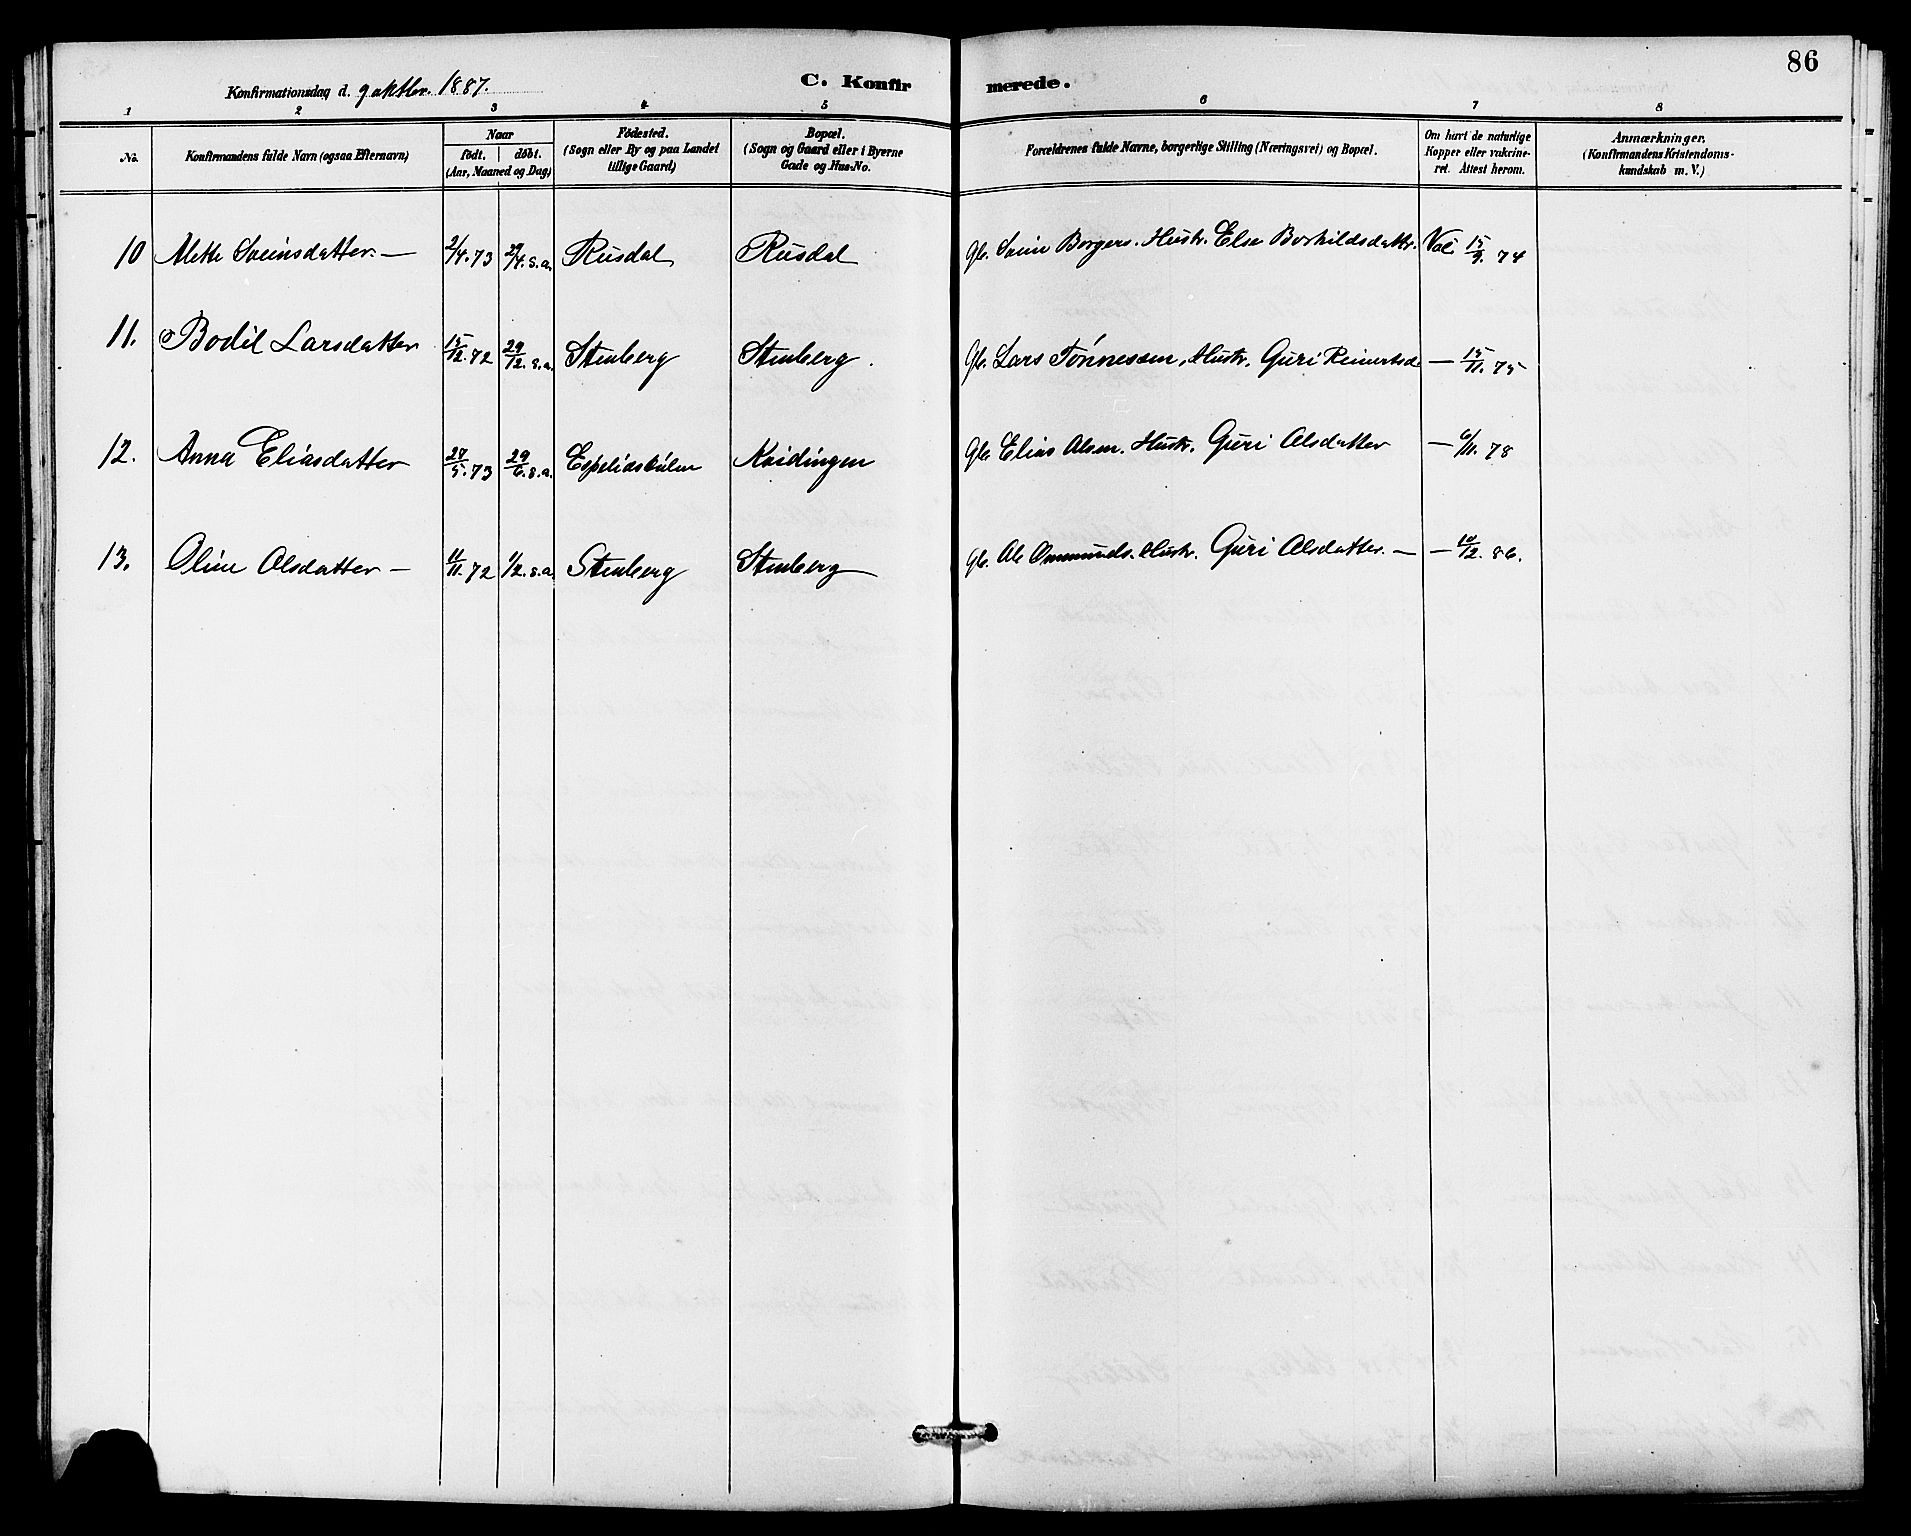 86
Konfirmationsdag d. 9 oktbr. 1887.
C. Konfirmerede.
1 2 3 4 5 6 7 8
No.
Konfirmandens fulde Navn (ogsaa Efternavn)
Naar
født. døbt.
(Aar, Maaned og Dag)
Fødested.
(Sogn eller By og paa Landet
tillige Gaard)
Bopæl.
(Sogn og Gaard eller i Byerne
Gade og Hus-No.
Forældrenes fulde Navne, borgerlige Stilling (Næringsvei) og Bopæl.
Om havt de naturlige
Kopper eller vakcine-
ret. Attest herom.
Anmærkninger.
(Konfirmandens Kristendoms-
kundskab m. V.)
10 Alette Sveinsdatter. — 2/4. 73 29/4. s.a. Rusdal Rusdal Gb. Svein Borgers. Hustr. Else Borhildsdattr. Vac. 15/9. 74
11. Bodil Larsdatter 15/12. 72 29/12. s.a. Stenberg Stenberg. Gb. Lars Tønnessen, Hustr. Guri Reinertsd. — 15/11. 75
12. Anna Eliasdatter 27/5. 73 29/6. s.a. Espelidstølen Kvidingen Gb. Elias Alsen. Hustr. Guri Alsdatter — 6/11. 78
13. Oline Alsdatter — 11/11. 72 1/12. s.a. Stenberg Stenberg Gb. Ale Ommunds. Hustr. Guri Alsdatter. — — 10/2. 86.